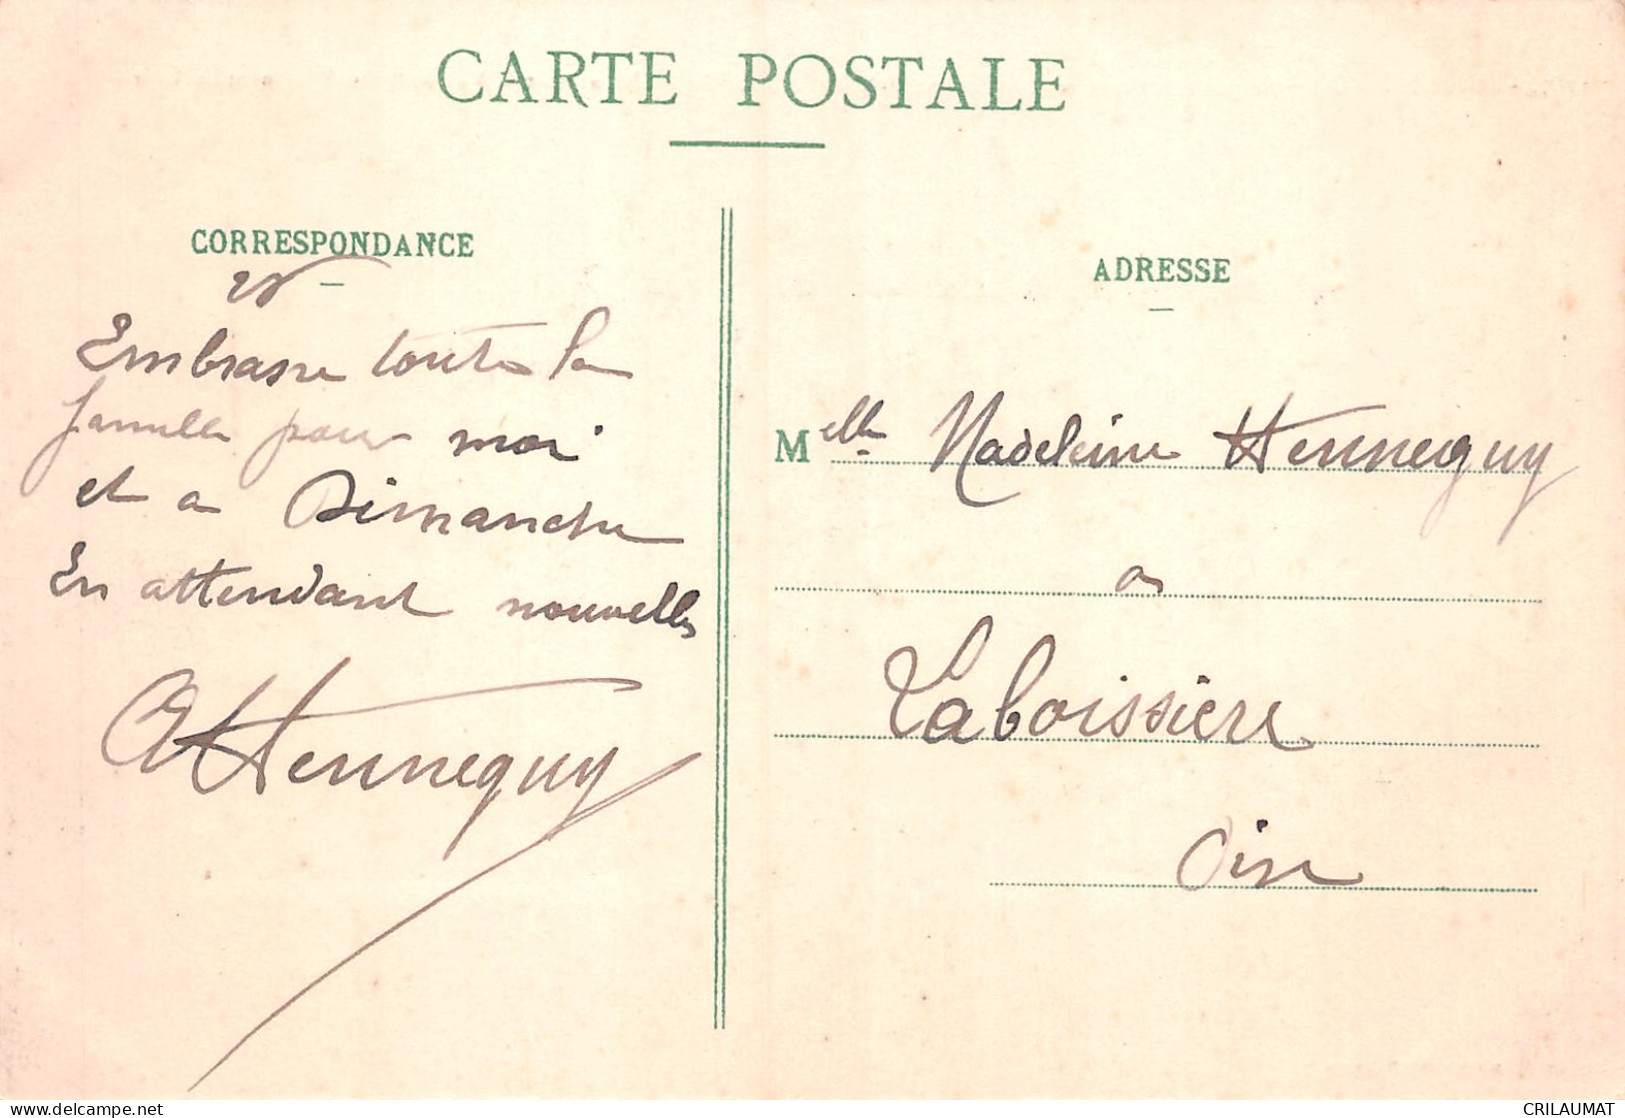 CARTE POSTALE
CORRESPONDANCE
Embrasse toute la
famille pour moi
et a Dimanche
En attendant nouvelles
Hennequy
ADRESSE
Melle Madeleine Hennequy
a
Laboissiere
Oise
CRILAUMAT